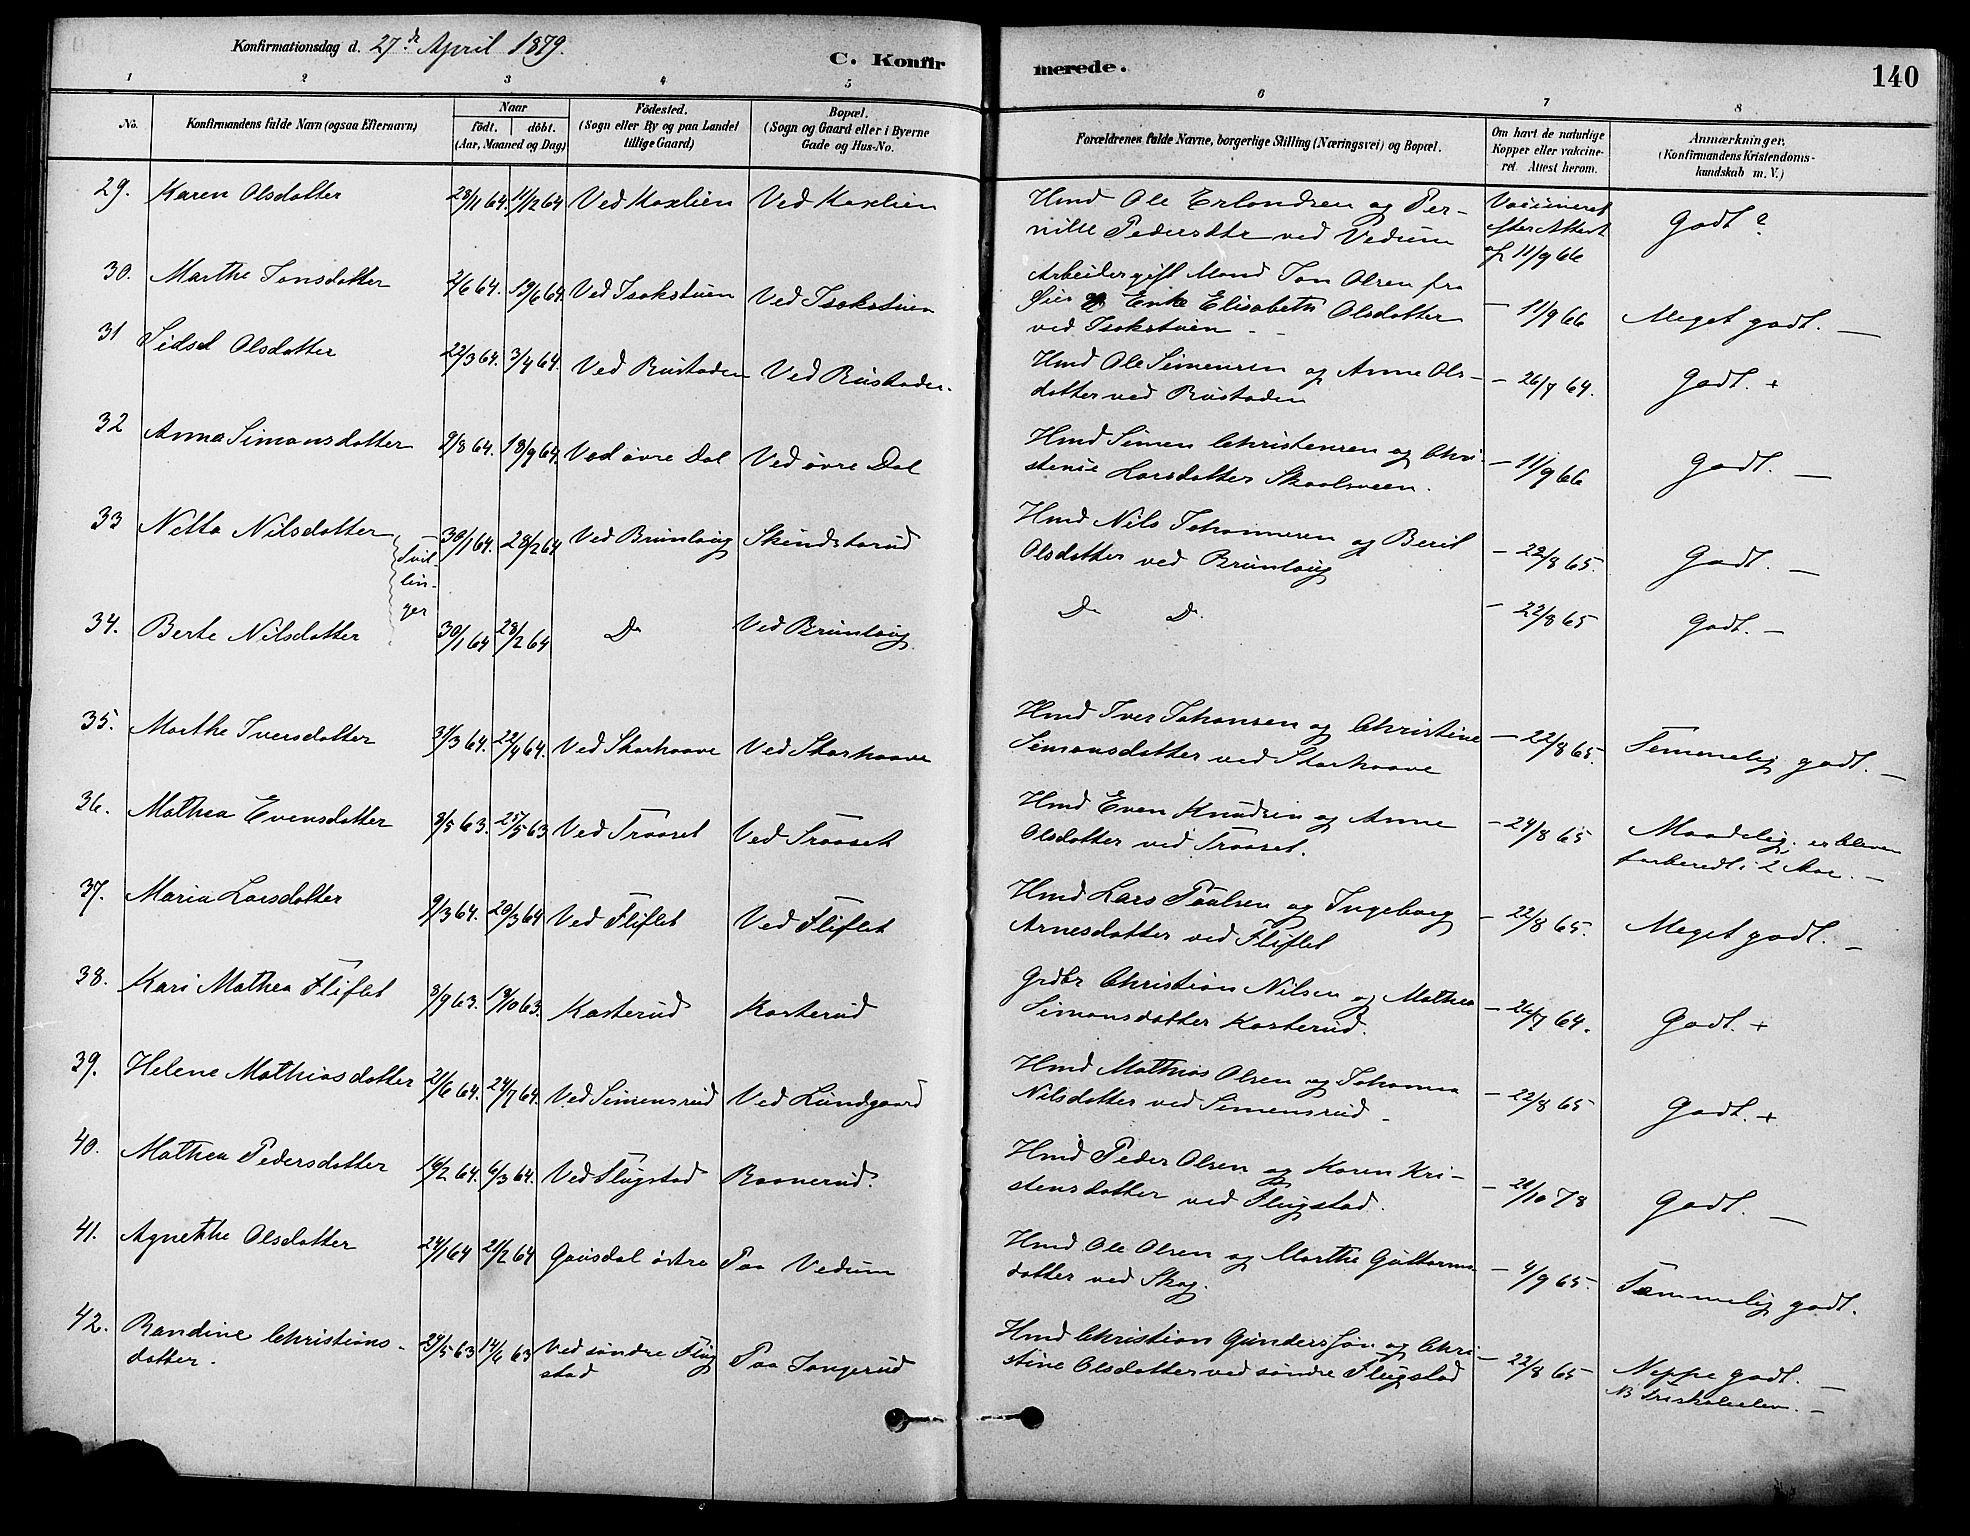 Konfirmationsdag d. 27de April 1879.
C. Konfirmerede.
140
1 2 3 4 5 6 7 8
No.
Konfirmandens fulde Navn (ogsaa Efternavn)
Naar
födt. döbt.
(Aar, Maaned og Dag)
Födested.
(Sogn eller By og paa Landet
tillige Gaard)
Bopæl.
(Sogn og Gaard eller i Byerne
Gade og Hus-No.
Forældrenes fulde Navne, borgerlige Stilling (Næringsvei) og Bopæl.
Om havt de naturlige
Kopper eller vakcine-
ret. Attest herom.
Anmærkninger.
(Konfirmandens Kristendoms-
kundskab m. V.)
29. Karen Olsdatter 28/1 64. 11/2 64 Ved Koxlien Ved Koxlien Hmd Ole Erlandsen og Per- Vaccineret Godt ?
nille Pedersdtr ved Vedum efter Attest
af 11/9 66
30. Marthe Jonsdatter 2/6 64. 19/6 64. Ved Isakstuen Ved Isakstuen Arbeider gift Mand Jon Olsen fra
Øier og Enke Elisabeth Olsdatter – 11/9 66 Meget godt. –
ved Isakstuen –
31 Sidsel Olsdatter 22/3 64. 3/4 64. Ved Rustaden Ved Rustaden. Hmd Ole Simensen og Anne Ols- – 26/7 64. Godt. +
datter ved Rustaden
32 Anna Simonsdatter 9/8 64. 18/9 64. Ved øvre Dal Ved øvre Dal Hmd Simen Christensen og Chri- – 11/9 66 Godt. –
stense Larsdatter Skaalsveen.
33 Netta Nilsdatter 30/1 64. 28/2 64 Ved Brunlaug Skindstarud Hmd Nils Johannesen og Berit – 22/8 65. Godt. –
Olsdatter ved Brunlaug
Tvil-
lin-
ger
34. Berte Nilsdatter 30/1 64 28/2 64 Do Ved Brunlaug. Do Do – 22/8 65 Godt. –
35. Marthe Iversdatter 31/3 64. 22/4 64. Ved Storhaave Ved Storhaave Hmd Iver Johansen og Christine – 22/8 65. Temmelig godt. –
Simonsdatter ved Storhaave
36. Mathea Evensdatter 3/5 63. 25/5 63 Ved Traaset Ved Traaset Hmd Even Knudsen og Anne – 24/8 65 Maadelig. er bleven
Olsdatter ved Traaset. forberedt i 2 Aar. –
37. Maria Larsdatter 9/3 64. 20/3 64 Ved Fliflet Ved Fliflet Hmd Lars Paulsen og Ingeborg – 22/8 65. Meget godt. –
Arnesdatter ved Fliflet
38. Kari Mathea Fliflet 3/9 63. 19/10 63. Kasterud Kasterud Grdbr Christian Nilsen og Mathea – 26/7 64. Godt. +
Simonsdatter Kasterud.
39. Helene Mathiasdatter 21/6 64. 24/7 64. Ved Simensrud Ved Lundgaard Hmd Mathias Olsen og Johanna – 22/8 65 Godt. +
Nilsdatter ved Simensrud –
40. Mathea Pedersdatter 16/2 64. 6/3 64. Ved Flugstad Baanerud. Hmd Peder Olsen og Karen Kri- – 21/10 78 Godt. –
stensdatter ved Flugstad.
41. Agnethe Olsdatter 24/1 64 21/2 64 Gausdal østre Paa Vedum Hmd Ole Olsen og Marthe Guttorms- – 4/9 65. Temmelig godt.
datter ved Skog.
42. Randine Christians- 29/5 63 14/6 63 Ved søndre Flug Paa Jongerud Hmd Christian Gundersson og Chri- – 22/8 65 Neppe godt. –
datter. stad stine Olsdatter ved søndre Flugstad NB Friskoleelev. –